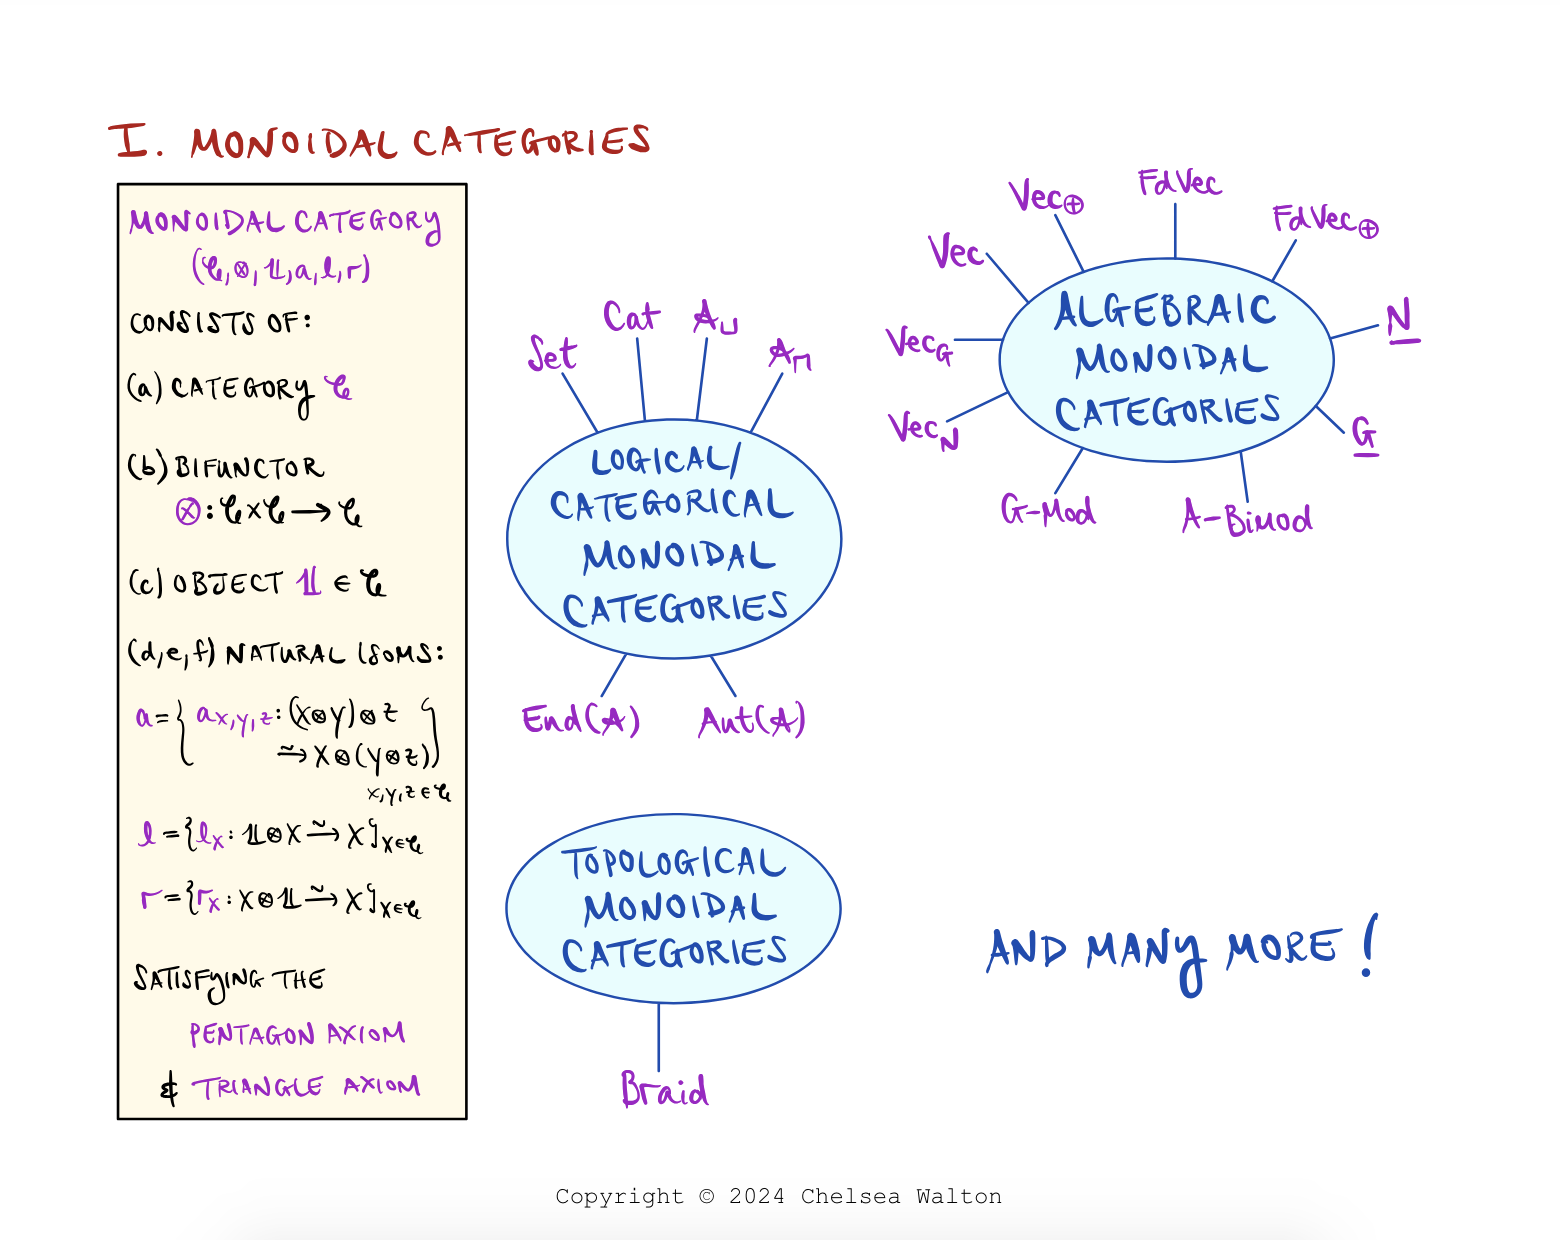 I. MONOIDAL CATEGORIES
MONOIDAL CATEGORY
(𝒞, ⊗, 𝟙, a, l, r)
CONSISTS OF:
(a) CATEGORY 𝒞
(b) BIFUNCTOR
⊗: 𝒞 × 𝒞 → 𝒞
(c) OBJECT 𝟙 ∈ 𝒞
(d,e,f) NATURAL ISOMS:
a = { a_{X,Y,Z} : (X⊗Y)⊗Z
⥲ X⊗(Y⊗Z) }
X,Y,Z ∈ 𝒞
l = { l_X : 𝟙⊗X ⥲ X }_{X∈𝒞}
r = { r_X : X⊗𝟙 ⥲ X }_{X∈𝒞}
SATISFYING THE
PENTAGON AXIOM
& TRIANGLE AXIOM
Set
Cat
𝔸_⊔
𝔸_⊓
LOGICAL/
CATEGORICAL
MONOIDAL
CATEGORIES
End(𝔸)
Aut(𝔸)
Vec_N
Vec_G
Vec
Vec_⊕
FdVec
FdVec_⊕
N
G
ALGEBRAIC
MONOIDAL
CATEGORIES
G-Mod
A-Bimod
TOPOLOGICAL
MONOIDAL
CATEGORIES
Braid
AND MANY MORE!
Copyright © 2024 Chelsea Walton